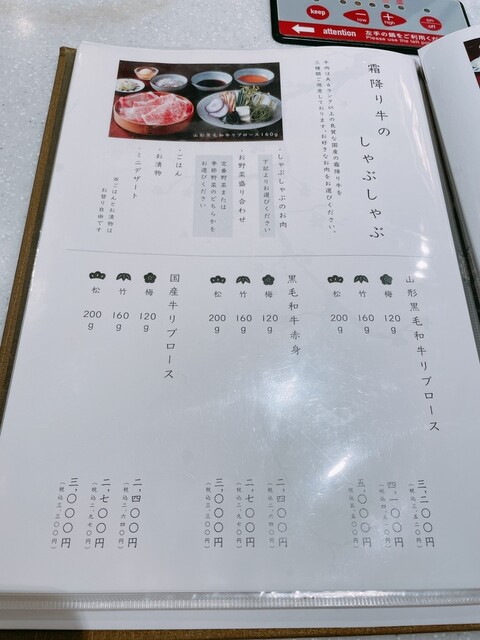 keep
low
high
on
off
attention
左手の鍋をご利用くだ
Please use the left p
霜降り牛の
しゃぶしゃぶ
牛肉はA4ランク以上の良質な国産の霜降り牛を
三種類ご用意しております。お好きなお肉をお選びください。
山形黒毛和牛リブロース160g
・しゃぶしゃぶのお肉
下記よりお選びください
・お野菜盛り合わせ
定番野菜または
季節野菜のどちらかを
お選びください
・ごはん
・お漬物
・ミニデザート
※ごはんとお漬物は
お替り自由です
山形黒毛和牛リブロース
梅 120g 三,二〇〇円
(税込三,五二〇円)
竹 160g 四,一〇〇円
松 200g 五,〇〇〇円
黒毛和牛赤身
梅 120g 二,四〇〇円
(税込二,六四〇円)
竹 160g 二,七〇〇円
(税込二,九七〇円)
松 200g 三,〇〇〇円
(税込三,三〇〇円)
国産牛リブロース
梅 120g 二,四〇〇円
(税込二,六四〇円)
竹 160g 二,七〇〇円
(税込二,九七〇円)
松 200g 三,〇〇〇円
(税込三,三〇〇円)